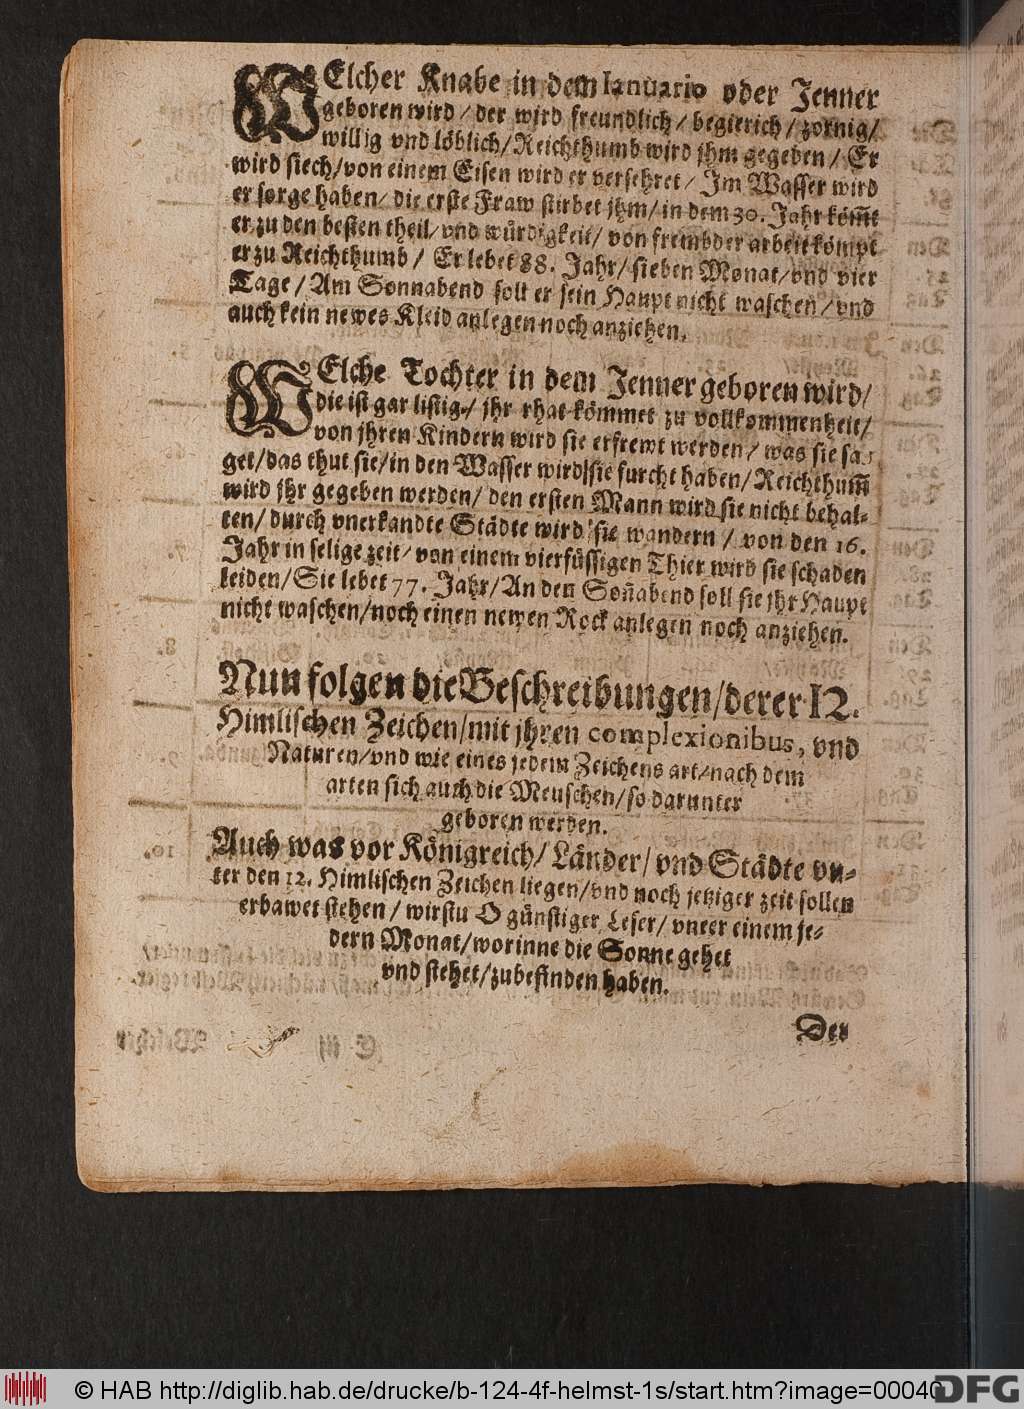 WElcher Knabe in dem Ianuario oder Jenner
geboren wird / der wird freundlich / begierich / zornig /
willig vnd löblich / Reichthumb wird jhm gegeben / Er
wird siech / von einem Eisen wird er versehret / Im Wasser wird
er sorge haben / die erste Fraw stirbet jhm / in dem 30. Jahr köm̃t
er zu den besten theil / vnd würdigkeit / von frembder arbeit kömpt
er zu Reichthumb / Er lebet 88. Jahr / sieben Monat / vnd vier
Tage / Am Sonnabend soll er sein Haupt nicht waschen / vnd
auch kein newes Kleid anlegen noch anziehen.
WElche Tochter in dem Jenner geboren wird /
die ist gar listig / jhr rhat kömmet zu vollkommenheit /
von jhren Kindern wird sie erfrewt werden / was sie sa-
get / das thut sie / in den Wasser wird sie furcht haben / Reichthum̃
wird jhr gegeben werden / den ersten Mann wird sie nicht behal-
ten / durch vnerkandte Städte wird sie wandern / von den 16.
Jahr in selige zeit / von einem vierfüssigen Thier wird sie schaden
leiden / Sie lebet 77. Jahr / An den Soñabend soll sie jhr Haupt
nicht waschen / noch einen newen Rock anlegen noch anziehen.
Nun folgen die Beschreibungen / derer 12.
Himlischen Zeichen / mit jhren complexionibus, vnd
Naturen / vnd wie eines jedem Zeichens art / nach dem
arten sich auch die Menschen / so darunter
geboren werden.
Auch was vor Königreich / Länder / vnd Städte vn-
ter den 12. Himlischen Zeichen liegen / vnd noch jetziger zeit sollen
erbawet stehen / wirstu O günstiger Leser / vnter einem je-
dern Monat / worinne die Sonne gehet
vnd stehet / zubefinden haben.
Der
© HAB http://diglib.hab.de/drucke/b-124-4f-helmst-1s/start.htm?image=00040
DFG